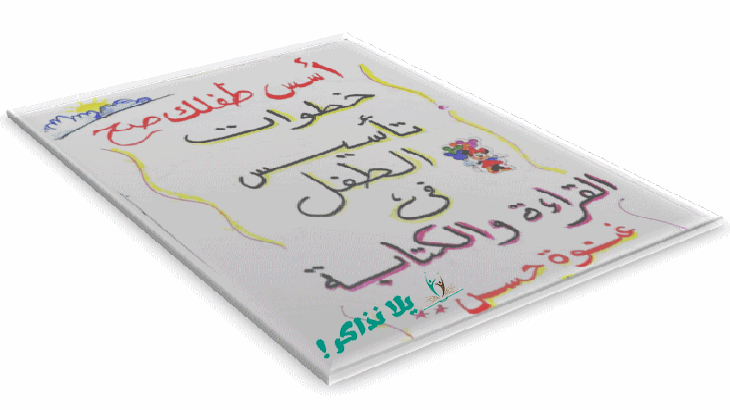 أسس طفلك صح
خطوات
تأسيس
الطفل
فى
القراءة والكتابة
غنوة حسن
يلا نذاكر!